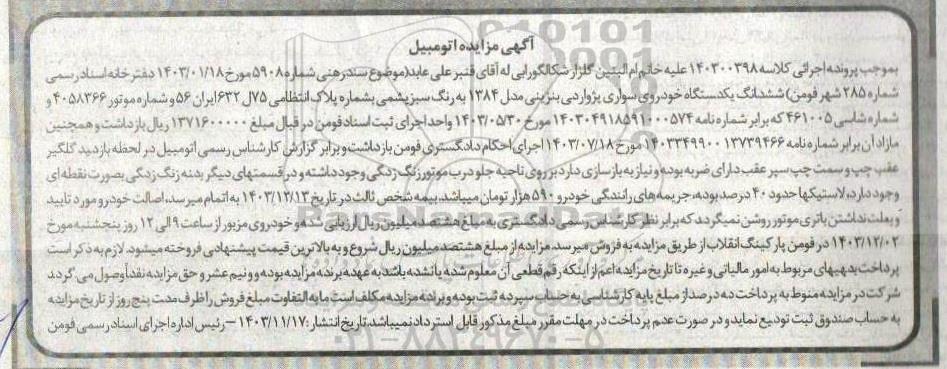 آگهی مزایده اتومبیل
بموجب پرونده اجرائی کلاسه ۱۴۰۳۰۰۳۹۸ علیه خانم ام البنین گلزار شکالگورابی له آقای قنبر علی عابد(موضوع سند رهنی شماره ۵۹۰۸ مورخ ۱۴۰۳/۰۱/۱۸ دفتر خانه اسناد رسمی
شماره ۲۸۵ شهر فومن) ششدانگ یکدستگاه خودروی سواری پژو آردی بنزینی مدل ۱۳۸۴ به رنگ سبز یشمی بشماره پلاک انتظامی ۷۵ل ۶۳۲ ایران ۵۶ و شماره موتور ۴۰۵۸۳۶۶ و
شماره شاسی ۴۶۱۰۰۵ که برابر شماره نامه ۱۴۰۳۰۴۹۱۸۵۹۱۰۰۰۵۷۴ مورخ ۱۴۰۳/۰۵/۳۰ واحد اجرای ثبت اسناد فومن در قبال مبلغ ۱۳۷۱۶۰۰۰۰۰ ریال بازداشت و همچنین
مازاد آن برابر شماره نامه ۱۴۰۳۳۴۹۹۰۰ ۱۳۷۳۹۴۶۶ مورخ ۱۴۰۳/۰۷/۱۸ اجرای احکام دادگستری فومن بازداشت و برابر گزارش کارشناس رسمی اتومبیل در لحظه بازدید گلگیر
عقب چپ و سمت چپ سپر عقب دارای ضربه بوده و نیاز به بازسازی دارد بر روی ناحیه جلو درب موتور زنگ زدگی وجود داشته و در قسمتهای دیگر بدنه زنگ زدگی بصورت نقطه ای
وجود دارد، لاستیکها حدود ۴۰ درصد بوده، جریمه های رانندگی خودرو ۵۹۰ هزار تومان میباشد. بیمه شخص ثالث در تاریخ ۱۴۰۳/۱۲/۱۳ به اتمام میرسد، اصالت خودرو مورد تایید
و بعلت نداشتن باتری موتور روشن نمیگردد که برابر نظر کارشناس رسمی دادگستری به مبلغ هشتصد میلیون ریال ارزیابی شده و خودروی مزبور از ساعت ۹ الی ۱۲ روز پنجشنبه مورخ
۱۴۰۳/۱۲/۰۲ در فومن پارکینگ انقلاب از طریق مزایده به فروش میرسد. مزایده از مبلغ هشتصد میلیون ریال شروع و به بالاترین قیمت پیشنهادی فروخته میشود. لازم به ذکر است
پرداخت بدهیهای مربوط به امور مالیاتی و غیره تا تاریخ مزایده اعم از اینکه رقم قطعی آن معلوم شده یا نشده باشد به عهده برنده مزایده بوده و نیم عشر و حق مزایده نقداً وصول می گردد
شرکت در مزایده منوط به پرداخت ده درصد از مبلغ پایه کارشناسی به حساب سپرده ثبت بوده و برنده مزایده مکلف است مابه التفاوت مبلغ فروش را ظرف مدت پنج روز از تاریخ مزایده
به حساب صندوق ثبت تودیع نماید و در صورت عدم پرداخت در مهلت مقرر مبلغ مذکور قابل استرداد نمیباشد. تاریخ انتشار: ۱۴۰۳/۱۱/۱۷ – رئیس اداره اجرای اسناد رسمی فومن
۰۲۱-۸۸۳۴۹۶۷۰-۵